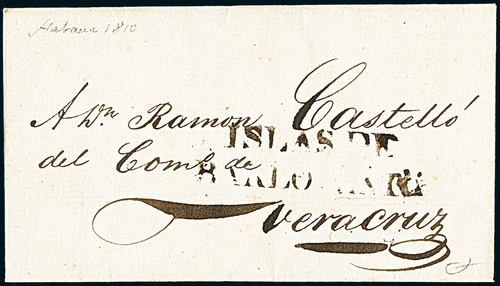 Habana 1810
A Dn Ramon Castelló
ISLAS DE
del Com.o de
BARLOVENTO
Veracruz